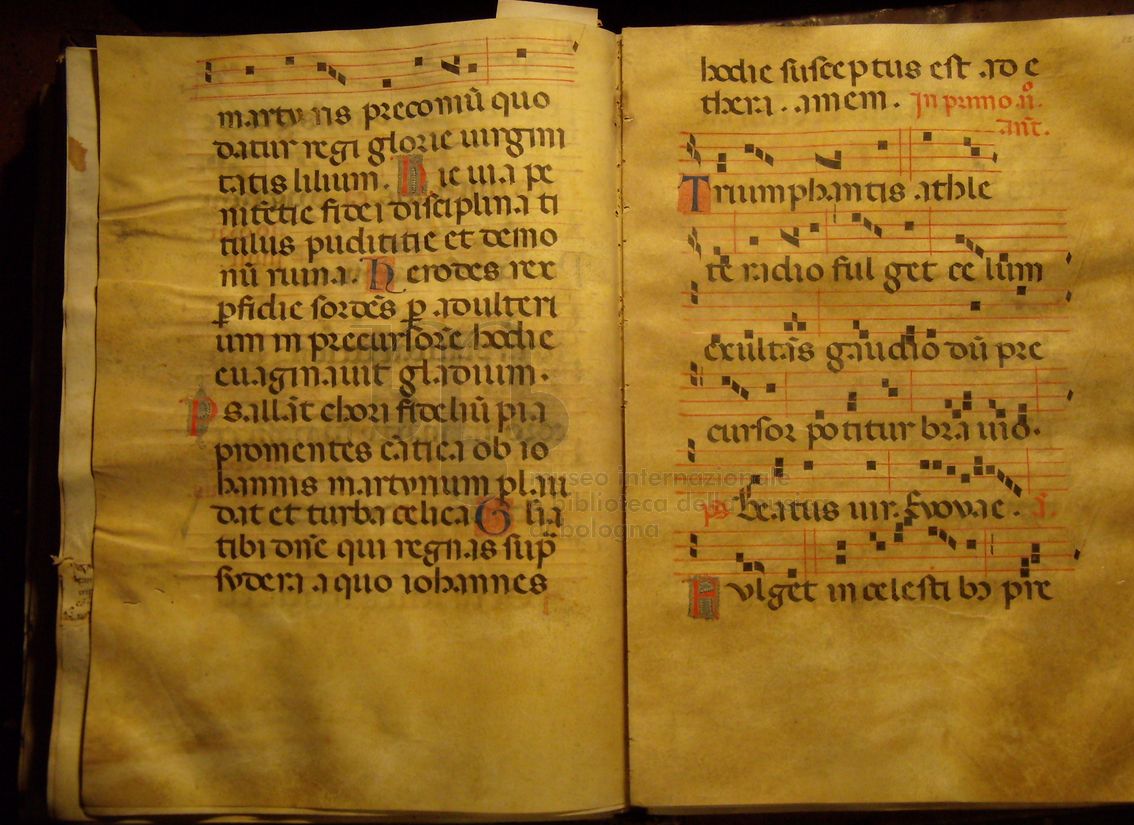 martyris preconiũ quo
datur regi glorie uirgini
tatis lilium. Hic uia pe
nitẽtie fidei disciplina ti
tulus pudititie et demo
nũ ruina. Herodes rex
ꝑfidie sordẽs ꝑ adulteri
um in precursorẽ hodie
euaginauit gladium.
Psallãt chori fideliũ pia
promentes cãtica ob io
hannis martyrium plau
dat et turba celica Glia
tibi dñe qui regnas sup̃
sydera a quo iohannes
hodie susceptus est ad e
thera. amem. In primo n̊.
añt.
Triumphantis athle
te radio fulget celum
exultãs gaudio dũ pre
cursor potitur brauio.
ps Beatus uir. Evovae.
Fulget in celesti
museo internazionale
biblioteca della musica
di bologna